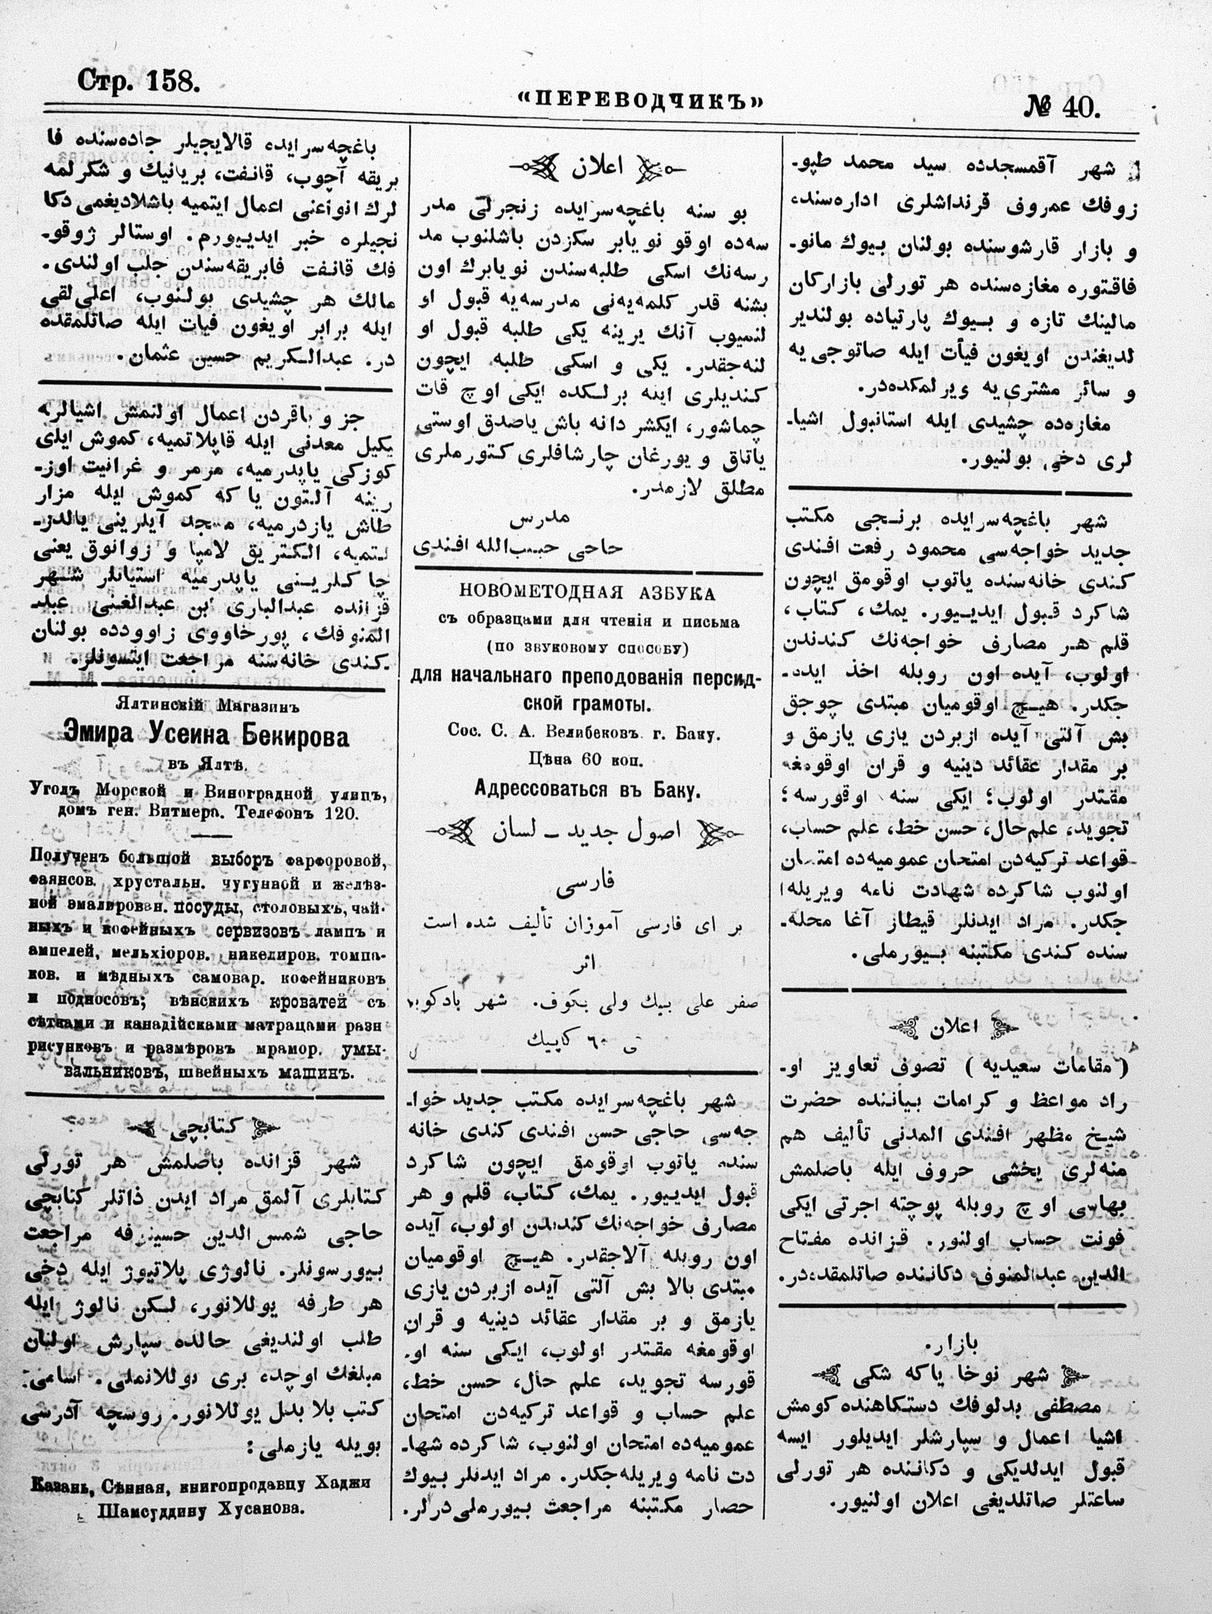 Стр. 158.
«ПЕРЕВОДЧИКЪ»
№ 40.
شهر آقمسجدده سيد محمد طپو-
زوفك معروف قرنداشلرى اداره‌سند،
و بازار قارشوسنده بولنان بيوك مانو-
فاقتوره مغازه‌سنده هر تورلى بازاركان
مالينك تازه و بيوك پارتياده بولندير
لديغندن اويغون فيأت ايله صاتوجى يه
و سائر مشترى يه ويرلمكده‌در.
مغازه‌ده چشيدى ايله استانبول اشيا-
لرى دخى بولنيور.
شهر باغچه‌سرايده برنجى مكتب
جديد خواجه‌سى محمود رفعت افندى
كندى خانه‌سنده ياتوب اوقومق ايچون
شاكرد قبول ايدييور. يمك، كتاب،
قلم هر مصارف خواجه‌نك كندندن
اولوب، آيده اون روبله اخذ ايده-
جكدر. هيچ اوقوميان مبتدى چوجق
بش آلتى آيده ازبردن يازى يازمق و
بر مقدار عقائد دينيه و قران اوقومغه
مقتدر اولوب؛ ايكى سنه اوقورسه؛
تجويد، علم‌حال، حسن خط، علم حساب،
قواعد تركيه‌دن امتحان عموميه‌ده امتحان
اولنوب شاكرده شهادت نامه ويريله
جكدر. مراد ايدنلر قيطاز آغا محله-
سنده كندى مكتبنه بيورملى.
اعلان
(مقامات سعيديه) تصوف تعاويز او-
راد مواعظ و كرامات بياننده حضرت
شيخ مظهر افندى المدنى تأليف هم
منه‌لرى يخشى حروف ايله باصلمش
بهاسى اوچ روبله پوچته اجرتى ايكى
فونت حساب اولنور. قزانده مفتاح
الدين عبدالمنوف دكاننده صاتلمقده‌در.
بازار.
شهر نوخا ياكه شكى
مصطفى بدلوفك دستكاهنده كومش
اشيا اعمال و سپارشلر ايديلور ايسه
قبول ايدلديكى و دكاننده هر تورلى
ساعتلر صاتلديغى اعلان اولنيور.
اعلان
بو سنه باغچه‌سرايده زنجرلى مدر
سه‌ده اوقو نويابر سكزدن باشلنوب مد
رسه‌نك اسكى طلبه‌سندن نويابرك اون
بشنه قدر كلمه‌يه‌نى مدرسه‌يه قبول او
لنميوب آنك يرينه يكى طلبه قبول او
لنه‌جقدر. يكى و اسكى طلبه ايچون
كنديلرى ايله برلكده ايكى اوچ قات
چماشور، ايكشر دانه باش ياصدق اوستى
ياتاق و يورغان چارشافلرى كتورملرى
مطلق لازمدر.
مدرس
حاجى حبيب‌الله افندى
НОВОМЕТОДНАЯ АЗБУКА
съ образцами для чтенія и письма
(по звуковому способу)
для начальнаго преподованія персид-
ской грамоты.
Сос. С. А. Велибековъ г. Баку.
Цѣна 60 коп.
Адрессоваться въ Баку.
اصول جديد – لسان
فارسى
بر اى فارسى آموزان تأليف شده است
اثر
صفر على بيك ولى بكوف. شهر بادكوبه
ى ٦٠ كاپيك
شهر باغچه‌سرايده مكتب جديد خوا-
جه‌سى حاجى حسن افندى كندى خانه
سنده ياتوب اوقومق ايچون شاكرد
قبول ايدييور. يمك، كتاب، قلم و هر
مصارف خواجه‌نك كندندن اولوب، آيده
اون روبله آلاجقدر. هيچ اوقوميان
مبتدى بالا بش آلتى آيده ازبردن يازى
يازمق و بر مقدار عقائد دينيه و قران
اوقومغه مقتدر اولوب، ايكى سنه او-
قورسه تجويد، علم حال، حسن خط،
علم حساب و قواعد تركيه‌دن امتحان
عموميه‌ده امتحان اولنوب، شاكرده شها-
دت نامه ويريله‌جكدر. مراد ايدنلر بيوك
حصار مكتبنه مراجعت بيورملى‌درلر.
باغچه‌سرايده قالايجيلر جاده‌سنده فا
بريقه آچوب، قانفت، بريانيك و شكرلمه
لرك انواعنى اعمال ايتميه باشلاديغمى دكا
نجيلره خبر ايدييورم. اوستالر ژوقو-
فك قانفت فابريقه‌سندن جلب اولندى.
مالك هر چشيدى بولنوب، اعلى‌لقى
ايله برابر اويغون فيات ايله صاتلمقده
در. عبدالكريم حسين عثمان.
جز و باقردن اعمال اولنمش اشيالره
يكيل معدنى ايله قاپلاتميه، كموش ايلى
كوزكى ياپدرميه، مرمر و غرانيت اوز-
رينه آلتون ياكه كموش ايله مزار
طاش يازدرميه، مسجد آيلرينى يالدز-
لتميه، الكتريق لامپا و زوانوق يعنى
چاكلرينى ياپدرميه استيانلر شهر
قزانده عبدالبارى بن عبدالغنى عبد
المنوفك، پورخاووى زاوودده بولنان
كندى خانه‌سنه مراجعت ايتسونلر.
Ялтинскій Магазинъ
Эмира Усеина Бекирова
въ Ялтѣ,
Уголъ Морской и Виноградной улицъ,
домъ ген. Витмера. Телефонъ 120.
Полученъ большой выборъ фарфоровой,
фаянсов. хрустальн. чугунной и желѣз-
ной эмалирован. посуды, столовыхъ, чай-
ныхъ и кофейныхъ сервизовъ лампъ и
ампелей, мельхіоров. никелиров. томпа-
ков. и мѣдныхъ самовар. кофейниковъ
и подносовъ; вѣнскихъ кроватей съ
сѣтками и канадійсками матрацами разн
рисунковъ и размѣровъ мрамор. умы-
вальниковъ, швейныхъ машинъ.
كتابچى
شهر قزانده باصلمش هر تورلى
كتابلرى آلمق مراد ايدن ذاتلر كتابچى
حاجى شمس الدين حسينوفه مراجعت
بيورسونلر. نالوژى پلاتيوژ ايله دخى
هر طرفه يوللانور، لكن نالوژ ايله
طلب اولنديغى حالده سپارش اولنان
مبلغك اوچده برى يوللانملى. اسامئ-
كتب بلا بدل يوللانور. روسچه آدرسى
بويله يازملى:
Казань, Сѣнная, книгопродавцу Хаджи
Шамсуддину Хусанова.